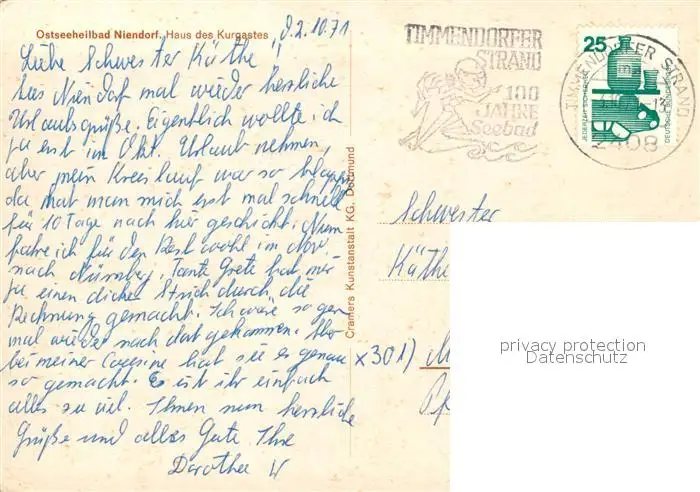 Ostseeheilbad Niendorf. Haus des Kurgastes
2.10.71
Liebe Schwester Käthe!
Aus Niendorf mal wieder herzliche
Urlaubsgrüße. Eigentlich wollte ich
ja erst im Okt. Urlaub nehmen,
aber mein Kreislauf war so
da hat man mich erst mal schnell
für 10 Tage nach hier geschickt. Nun
fahre ich für den Rest wohl im Nov.
nach Nürnberg. Tante Grete hat mir
ja einen dicken Strich durch die
Rechnung gemacht. Ich wäre so gern
mal wieder nach dort gekommen. Aber
bei meiner Cousine hat sie es genau
so gemacht. Es ist ihr einfach
alles zu viel. Ihnen nun herzliche
Grüße und alles Gute Ihre
Dorothee W
Cramers Kunstanstalt KG. Dortmund
TIMMENDORFER
STRAND
100
JAHRE
Seebad
25
JEDERZEIT SICHERHEIT
DEUTSCHE BUNDESPOST
TIMMENDORFER STRAND
2408
Schwester
Käthe
x 301)
privacy protection
Datenschutz